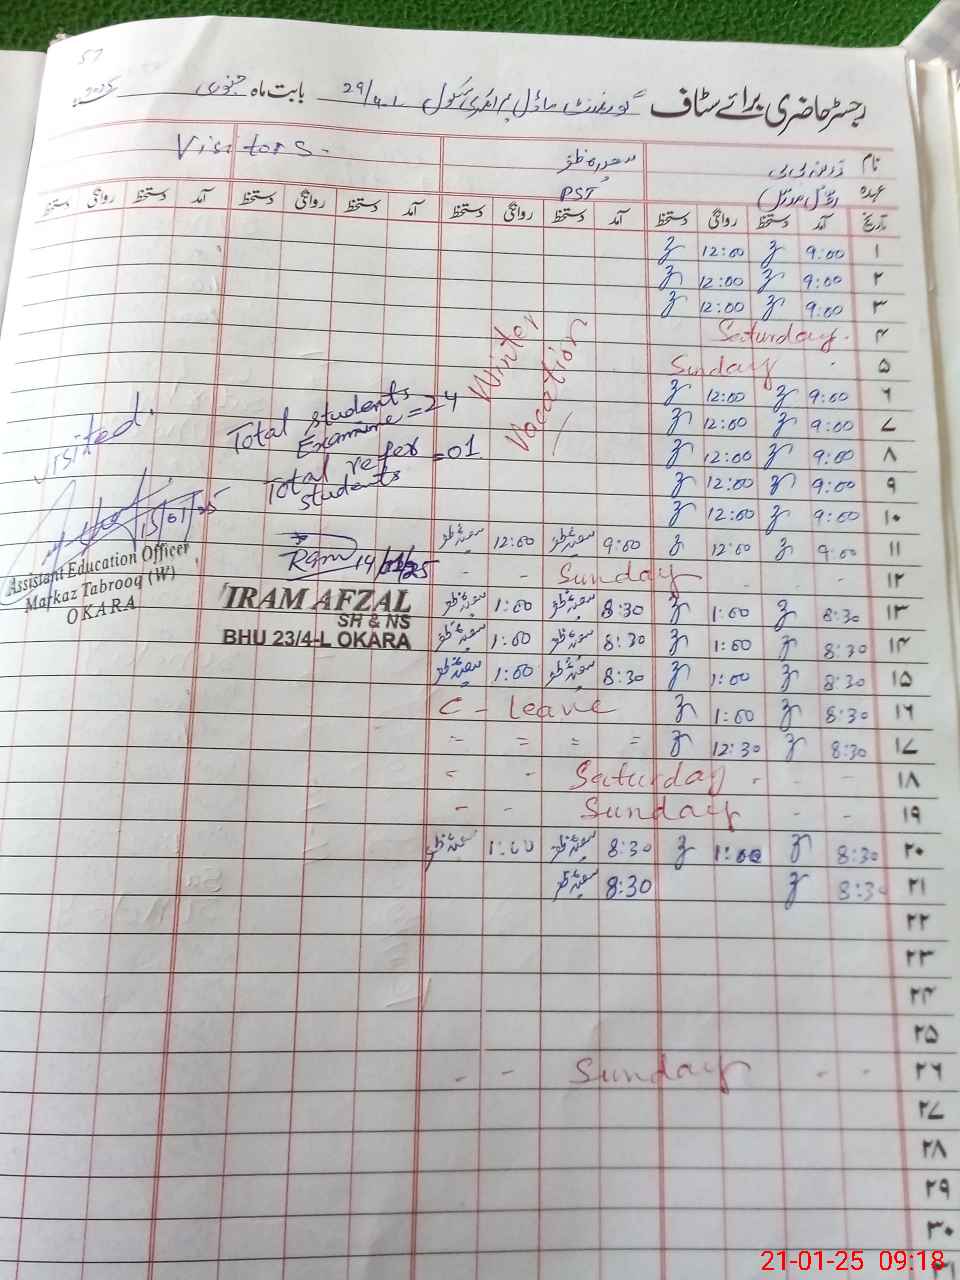 57
رجسٹر حاضری برائے سٹاف گورنمنٹ ماڈل پرائمری سکول 29/4.L بابت ماہ جنوری 2025
نام Visitors.
عہدہ PST
تاریخ آمد دستخط روانگی دستخط آمد دستخط روانگی دستخط آمد دستخط روانگی دستخط آمد دستخط روانگی دستخط
۱ 9:00 12:00
۲ 9:00 12:00
۳ 9:00 12:00
۴ Saturday.
۵ Sunday
Winter Vacation
۶ 9:00 12:00
۷ 9:00 12:00
۸ 9:00 12:00
۹ 9:00 12:00
۱۰ 9:00 12:00
۱۱ 9:00 12:00 9:00 12:00
۱۲ - - - Sunday - -
۱۳ 8:30 1:00 8:30 1:00
۱۴ 8:30 1:00 8:30 1:00
۱۵ 8:30 1:00 8:30 1:00
۱۶ 8:30 1:00 C - Leave
۱۷ 8:30 12:30 = = = =
۱۸ - - - Saturday - -
۱۹ - - Sunday - -
۲۰ 8:30 1:00 8:30 1:00
۲۱ 8:30 8:30
۲۲
۲۳
۲۴
۲۵
۲۶ - - Sunday - -
۲۷
۲۸
۲۹
۳۰
Total students
Examine = 24
Total refer = 01
students
14/01/25
IRAM AFZAL
SH & NS
BHU 23/4-L OKARA
Visited.
15/01/25
Assistant Education Officer
Markaz Tabrooq (W)
OKARA
21-01-25 09:18